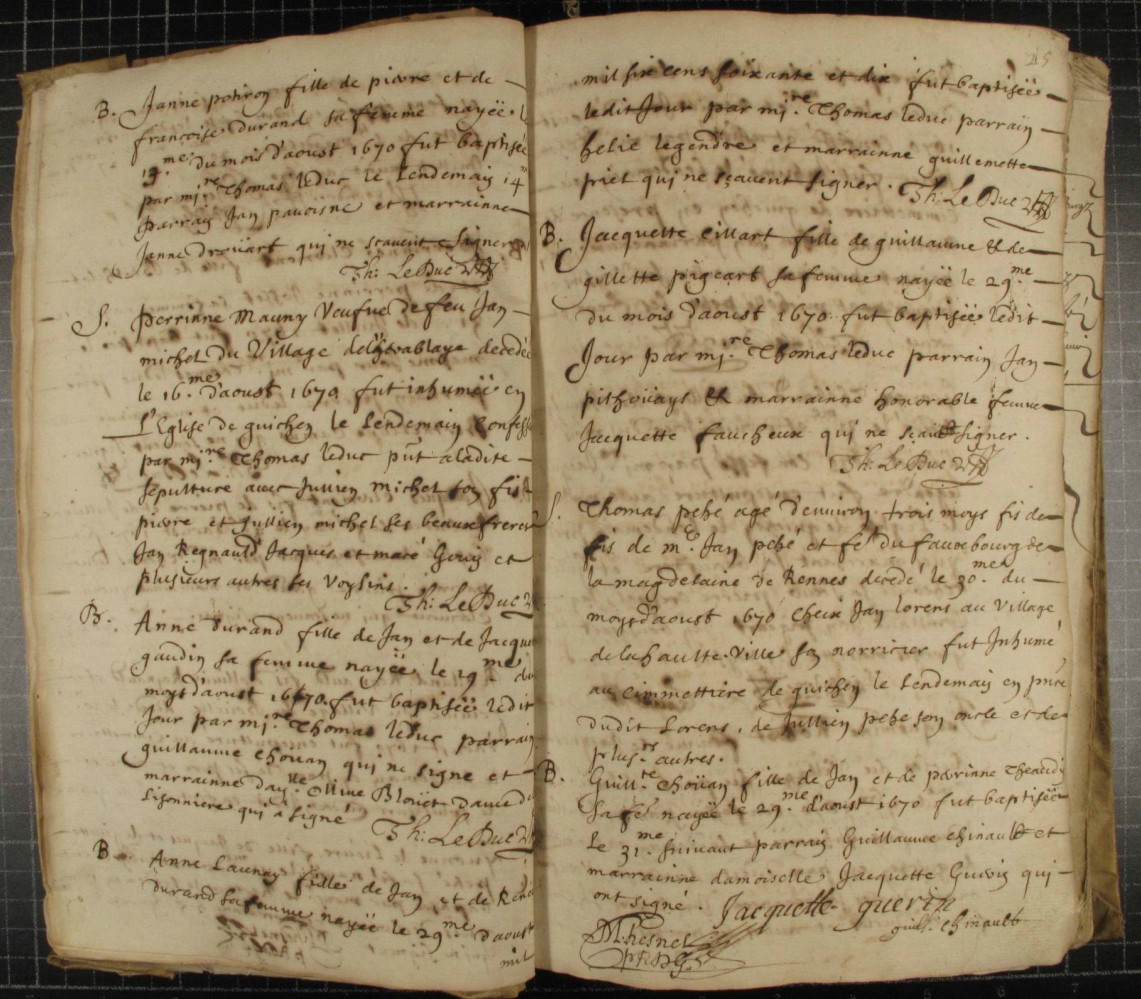 B. Janne potiron fille de pierre et de
francoise Durand sa femme nayëe
me du mois d'aoust 1670 fut baptisée
par mi.re Thomas leduc le Lendemain 14
parrain Jan pavoisne et marrainne
Janne Droüart qui ne scavent Signer
Th: LeDuc
S. Perrinne Mauny Veufue De feu Jan
michel Du Village decedée
le 16.me D'aoust 1670 fut inhumëe en
L'Eglise de guichen le Lendemain Confess
par mi.re Thomas leduc pñt aladite
sepulture avec Jullien michel son fis
pierre et jullien michel ses beaux freres
Jan Regnauld Jacques et maré Gouin et
plusieurs autres ses Voysins.
Th: LeDuc
B. Anne Durand fille de Jan et de Jacque
gaudin sa femme nayëe le 19.me du
moys d'aoust 1670. fut baptisëe ledit
Jour par mi.re Thomas leduc parrain
guillaume choüan qui ne signe et
marrainne Olline Bloüet dame d
Lisonniere qui a signé
Th: LeDuc
B. Anne Launay fille de Jan et de René
Durand sa femme nayëe le 29.me d'aoust
mil
25
mil six cens soixante et dix fut baptisëe
ledit Jour par mi.re Thomas leduc parrain
helie legendre et marrainne guillemette
priet qui ne sçavent signer. Th: LeDuc
B. Jacquette eillart fille de guillaume & de
gillette pigeart sa femme nayëe le 29.me
du mois d'aoust 1670. fut baptisëe ledit
Jour par mi.re Thomas leduc parrain Jan
pithoüays & marrainne honorable femme
Jacquette faucheux qui ne signer.
Th: LeDuc
S. Thomas pehé agé D'environ trois moys fis de
fis de m.e Jan pehé et fe du fauxbourg de
la magdelaine de Rennes decedé le 30.me du
moys d'aoust 1670 cheix Jan lorens au Village
de la haulte Ville son norricier fut Inhumé
au cimmettiere de guichen le Lendemain en pñce
dudit Lorens, de Jullien pehe son oncle et de
plus.rs autres.
B. Guill.te Choüan fille de Jan et de perrinne
sa fe nayëe le 29.me d'aoust 1670 fut baptisëe
Le 31.me suivant parrain Guillaume chinault et
marrainne damoiselle Jacquette Guerin qui
ont signé. Jacquette guerin
guill. chinault